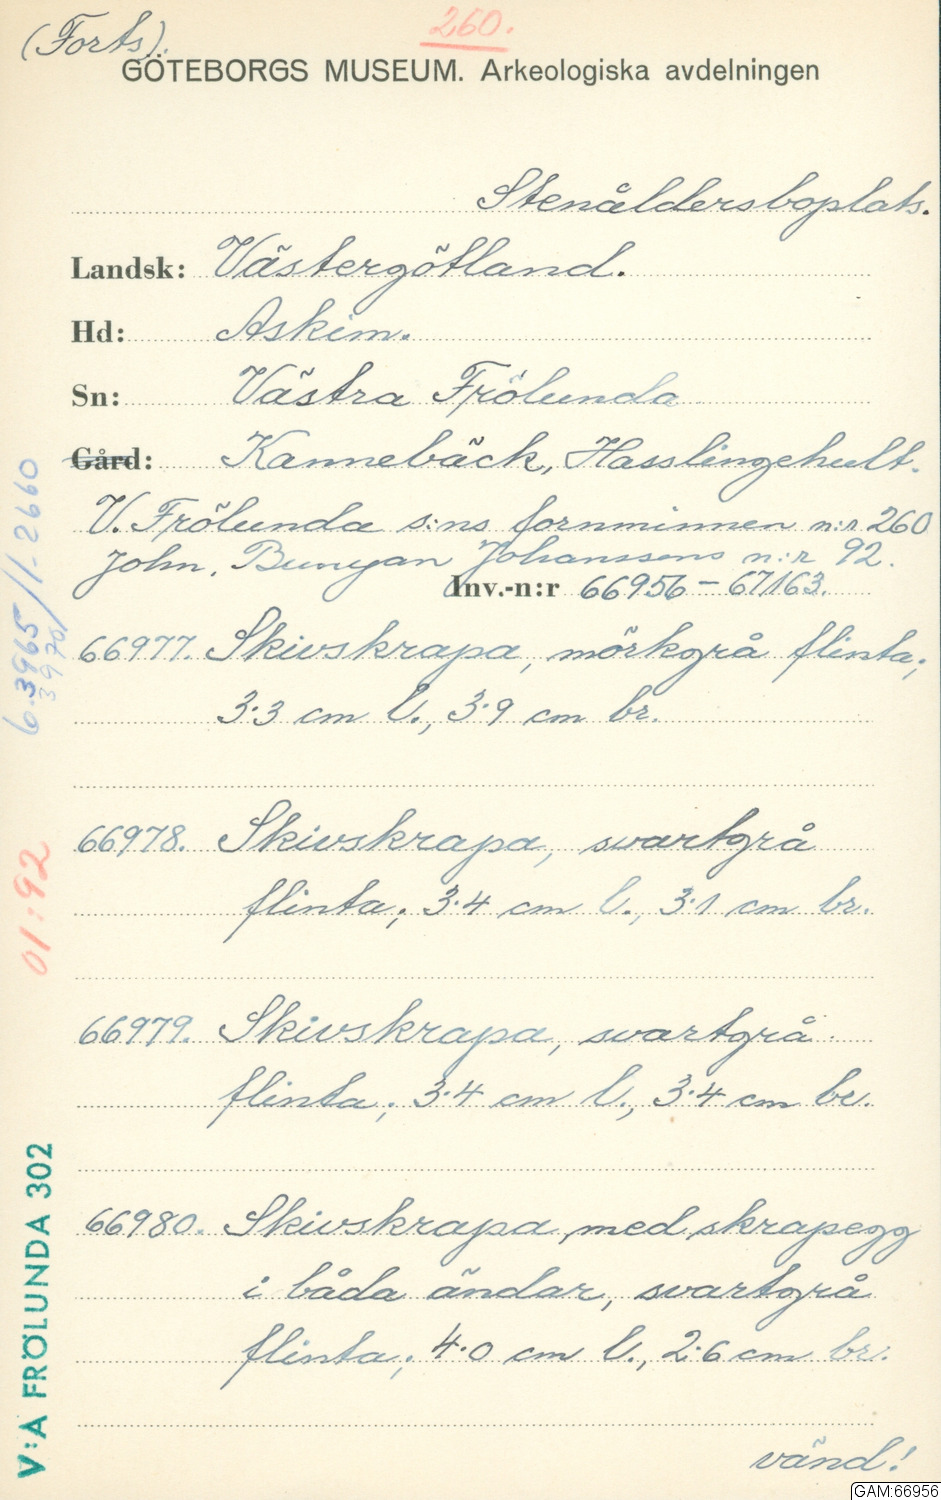 (Forts).
260.
GÖTEBORGS MUSEUM. Arkeologiska avdelningen
Stenåldersboplats.
Landsk: Västergötland.
Hd: Askim.
Sn: Västra Frölunda
Gård: Kannebäck, Hasslingehult.
V. Frölunda s:ns fornminnen n:r 260
John. Bunyan Johanssons n:r 92.
Inv.-n:r 66956 – 67163.
66977. Skivskrapa, mörkgrå flinta;
3·3 cm l., 3·9 cm br.
66978. Skivskrapa, svartgrå
flinta; 3·4 cm l., 3·1 cm br.
66979. Skivskrapa, svartgrå
flinta; 3·4 cm l., 3·4 cm br.
66980. Skivskrapa med skrapegg
i båda ändar, svartgrå
flinta; 4·0 cm l., 2·6 cm br.
vänd!
6.3965/1-2660
3970/
01:92
V:A FRÖLUNDA 302
GAM:66956